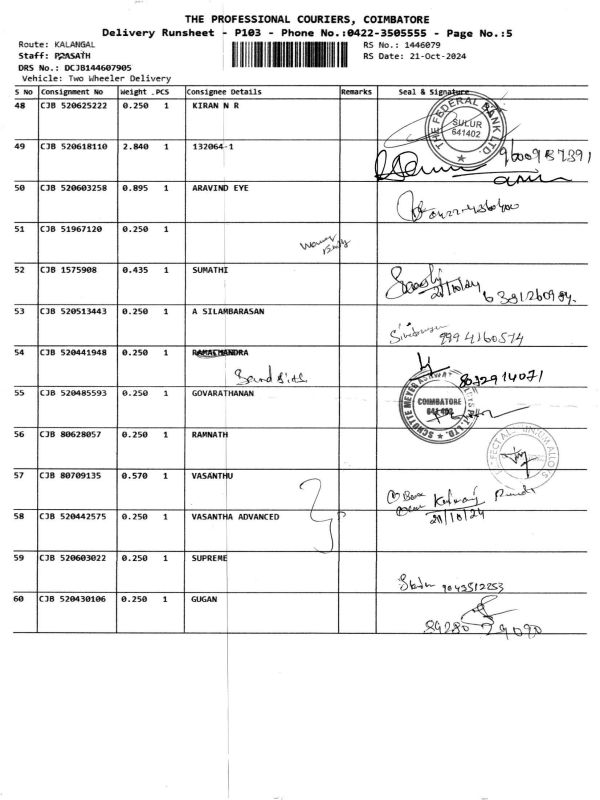 THE PROFESSIONAL COURIERS, COIMBATORE
Delivery Runsheet - P103 - Phone No.:0422-3505555 - Page No.:5
Route: KALANGAL
RS No.: 1446079
Staff: PRASATH
RS Date: 21-Oct-2024
DRS No.: DCJB144607905
Vehicle: Two Wheeler Delivery
S No Consignment No Weight . PCS Consignee Details Remarks Seal & Signature
48 CJB 520625222 0.250 1 KIRAN N R
THE FEDERAL BANK LTD.
SULUR
641402
49 CJB 520618110 2.840 1 132064-1
50 CJB 520603258 0.895 1 ARAVIND EYE
51 CJB 51967120 0.250 1
52 CJB 1575908 0.435 1 SUMATHI
21/10/24
53 CJB 520513443 0.250 1 A SILAMBARASAN
9994160574
54 CJB 520441948 0.250 1 RAMACHANDRA
8072914071
55 CJB 520485593 0.250 1 GOVARATHANAN
COIMBATORE
641 402
56 CJB 80628057 0.250 1 RAMNATH
57 CJB 80709135 0.570 1 VASANTHU
21/10/24
58 CJB 520442575 0.250 1 VASANTHA ADVANCED
59 CJB 520603022 0.250 1 SUPREME
9043512253
60 CJB 520430106 0.250 1 GUGAN
89280 29090